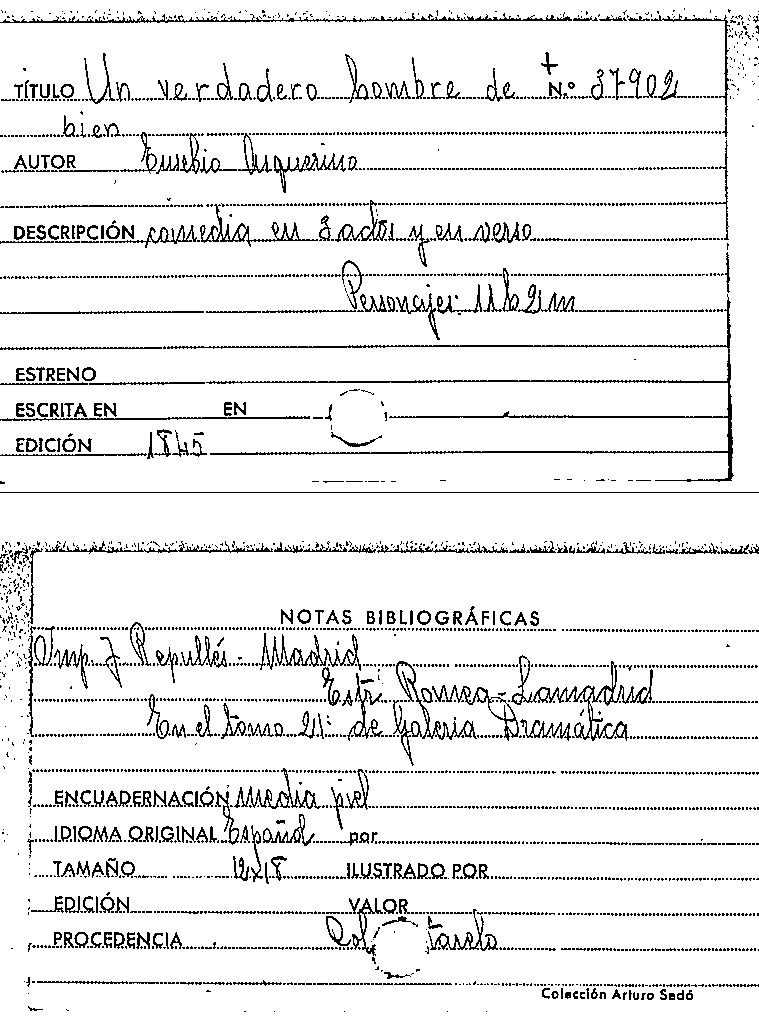 TÍTULO Un verdadero hombre de + N.º 37902
bien
AUTOR Eusebio Asquerino
DESCRIPCIÓN comedia en 3 actos y en verso
Personajes: 11 h 2 m
ESTRENO
ESCRITA EN EN
EDICIÓN 1845
NOTAS BIBLIOGRÁFICAS
Imp. J Repullés - Madrid
Estr. Romea - Lamadrid
En el tomo de Galeria Dramática
ENCUADERNACIÓN media piel
IDIOMA ORIGINAL Español por
TAMAÑO 12x18 ILUSTRADO POR
EDICIÓN VALOR
PROCEDENCIA Col tarelo
Colección Arturo Sedó